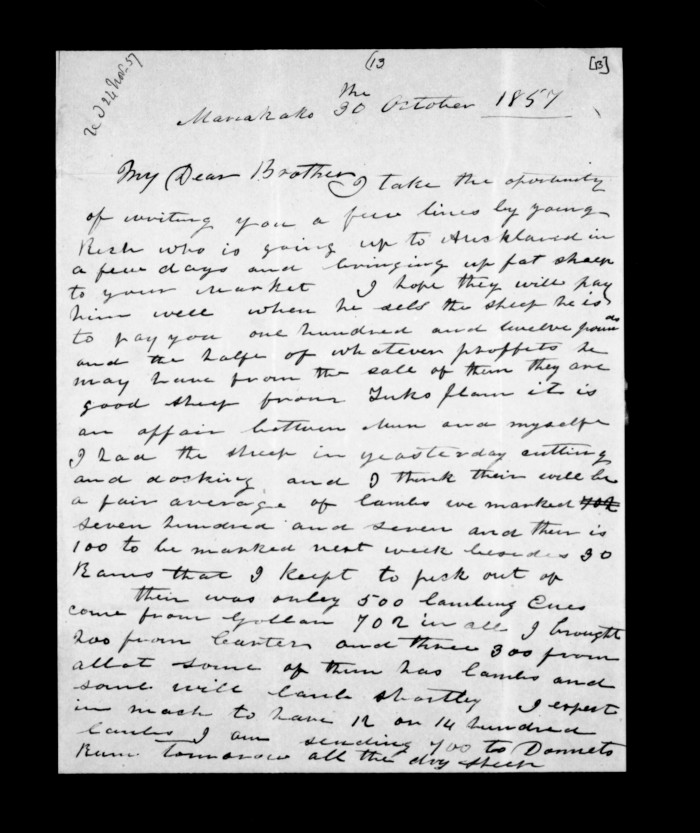 (13
[13]
Rec'd 24 Nov. 57
Maraakako 30 the October 1857
My Dear Brother I take the oportunity
of writing you a few lines by young
Rich who is going up to Auckland in
a few days and bringing up fat sheep
to your market I hope they will pay
him well when he sels the sheep he is
to pay you one hundred and twelve pounds
and the halfe of whatever proffets he
may have from the sale of them they are
good sheep from it is
an affair between him and myselfe
I had the sheep in yeasterday cutting
and docking and I think their will be
a fair average of lambs we marked 702
seven hundred and seven and their is
100 to be marked next week besides 30
Rams that I keept to pick out of
their was onley 500 lambing Ewes
come from Gollan 702 in all I brought
200 from Carters and three 300 from
allot some of them has lambs and
some will lamb shortley I expect
in mach to have 12 or 14 hundred
lambs I am sending 700 to Donnets
tomorrow all the dry sheep